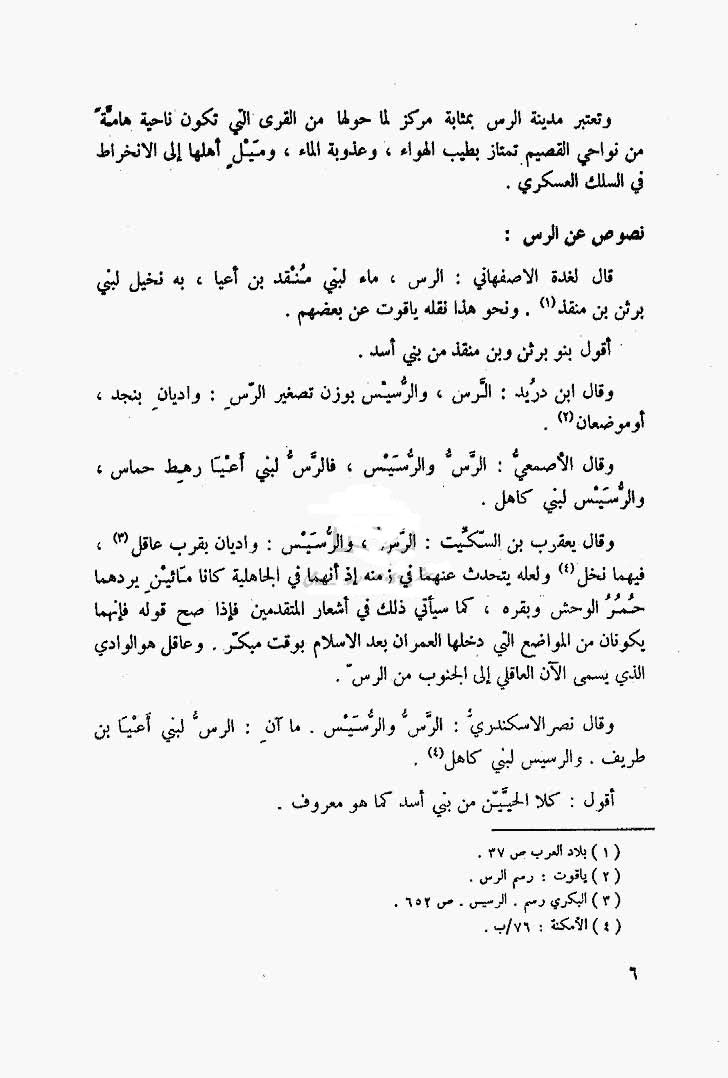 وتعتبر مدينة الرس بمثابة مركز لما حولها من القرى التي تكون ناحية هامّة
من نواحي القصيم تمتاز بطيب الهواء ، وعذوبة الماء ، ومَيْلِ أهلها إلى الانخراط
في السلك العسكري .
نصوص عن الرس :
قال لغدة الاصفهاني : الرس ، ماء لبني مُنْقد بن أعيا ، به نخيل لبني
برثن بن منقذ(١) . ونحو هذا نقله ياقوت عن بعضهم .
أقول بنو برثن وبن منقذ من بني أسد .
وقال ابن دريُد : الرَّس ، والرُّسيْس بوزن تصغير الرّسِ : واديانِ بنجد ،
أوموضعان(٢) .
وقال الأصمعيُّ : الرَّسُّ والرُّسَيْس ، فالرَّسُّ لبني أَعْيَا رهط حماس ،
والرُّسَيْس لبني كاهل .
وقال يعقرب بن السكِّيت : الرَّس ، والرُّسَيْس : واديان بقرب عاقل(٣) ،
فيهما نخل(٤) ولعله يتحدث عنهما في زمنه إذ أنهما في الجاهلية كانا مائيْنِ يردهما
حُمُرُ الوحش وبقره ، كما سيأتي ذلك في أشعار المتقدمين فإذا صح قوله فإنهما
يكونان من المواضع التي دخلها العمران بعد الاسلام بوقت مبكّر . وعاقل هوالوادي
الذي يسمى الآن العاقلي إلى الجنوب من الرسّ .
وقال نصرالاسكندريُّ : الرَّسُّ والرُّسَيْس . ما آنِ : الرسُّ لبني أَعْيَا بن
طريف . والرسيس لبني كاهل(٤) .
أقول : كلا الحيَّيْن من بني أسد كما هو معروف .
( ١ ) بلاد العرب ص ٣٧ .
( ٢ ) ياقوت : رسم الرس .
( ٣ ) البكري رسم . الرسيس . ص ٦٥٢ .
( ٤ ) الأمكنة : ٧٦/ب .
٦